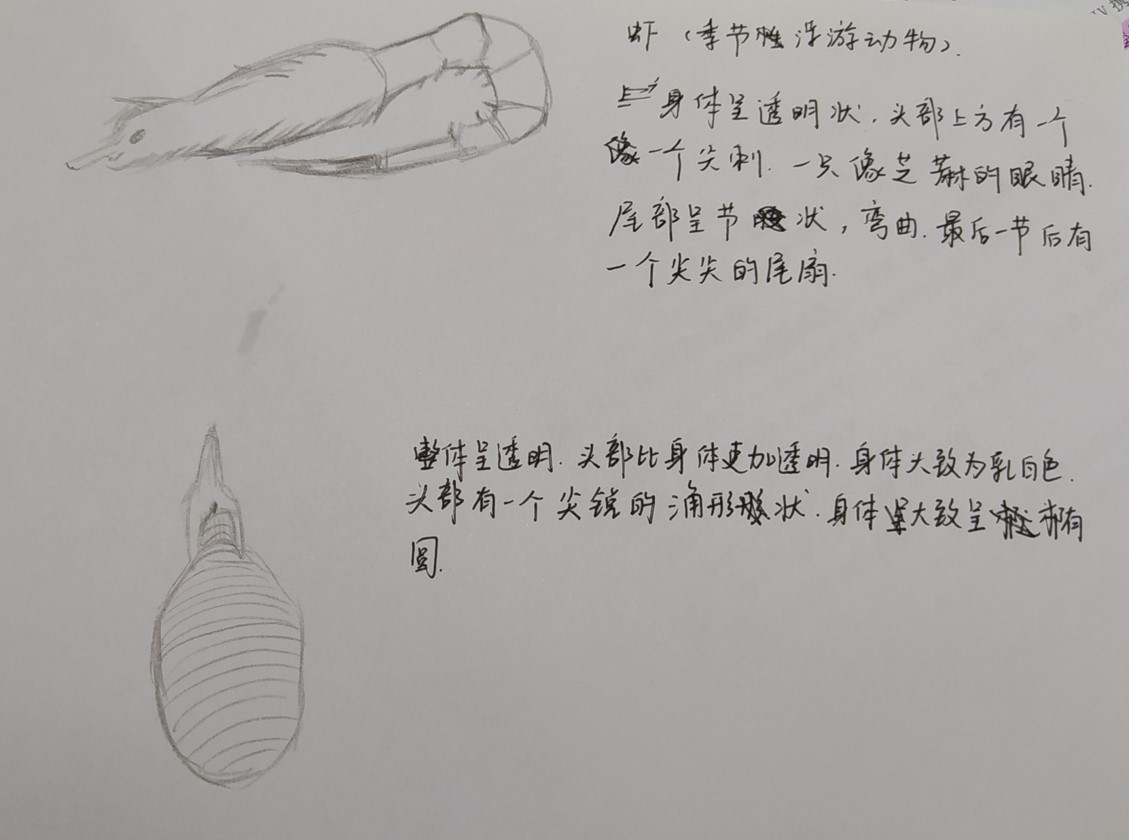 虾（季节性浮游动物）.
身体呈透明状．头部上方有一个
像一个尖刺．一只像芝麻的眼睛．
尾部呈节状，弯曲．最后一节后有
一个尖尖的尾扇．
整体呈透明．头部比身体更加透明．身体大致为乳白色．
头部有一个尖锐的角形状．身体大致呈
圆．